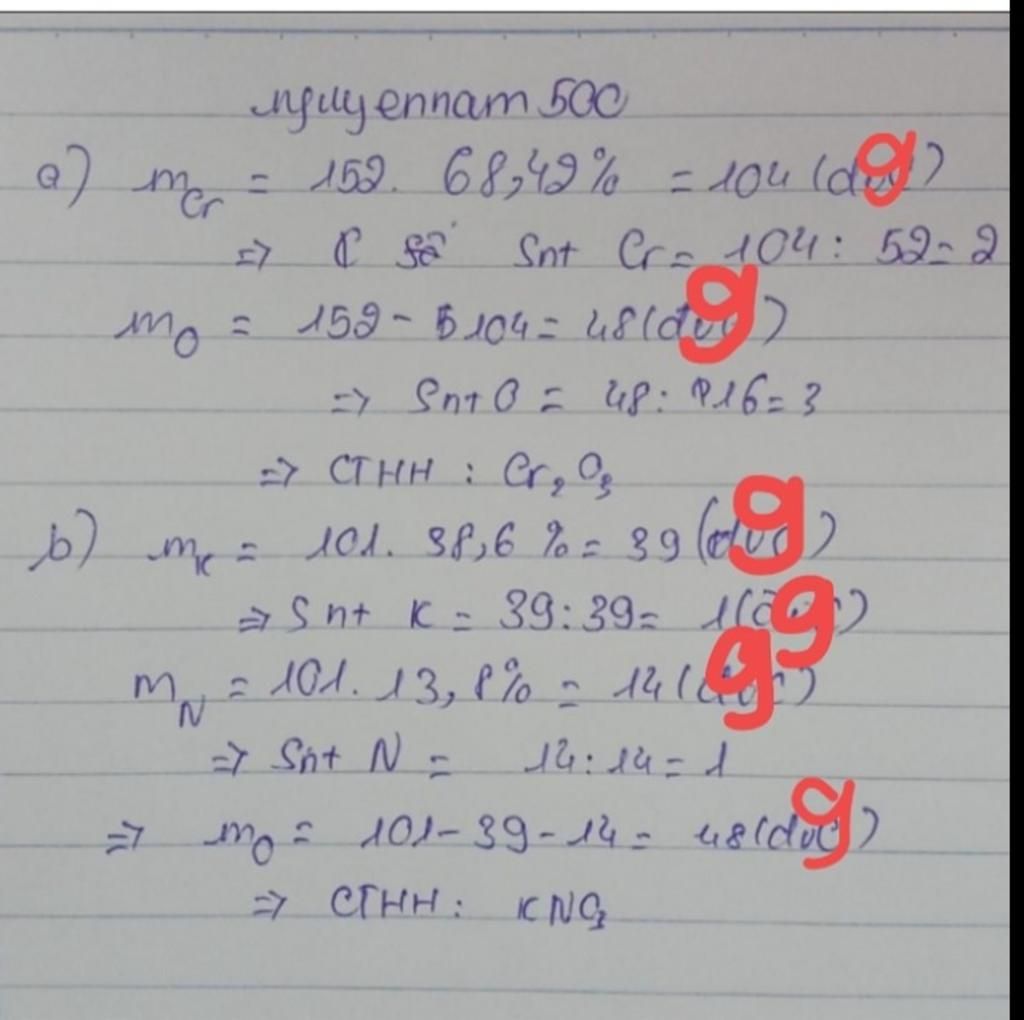 nguyennam 500
a) mCr = 152. 68,42% = 104 (g)
=> số Snt Cr = 104 : 52 = 2
mO = 152 - 104 = 48 (g)
=> Snt O = 48 : 16 = 3
=> CTHH : Cr2O3
b) mK = 101. 38,6 % = 39 (g)
=> Snt K = 39 : 39 = 1 (g)
mN = 101. 13,8% = 14 (g)
=> Snt N = 14 : 14 = 1
=> mO = 101 - 39 - 14 = 48 (g)
=> CTHH : KNO3